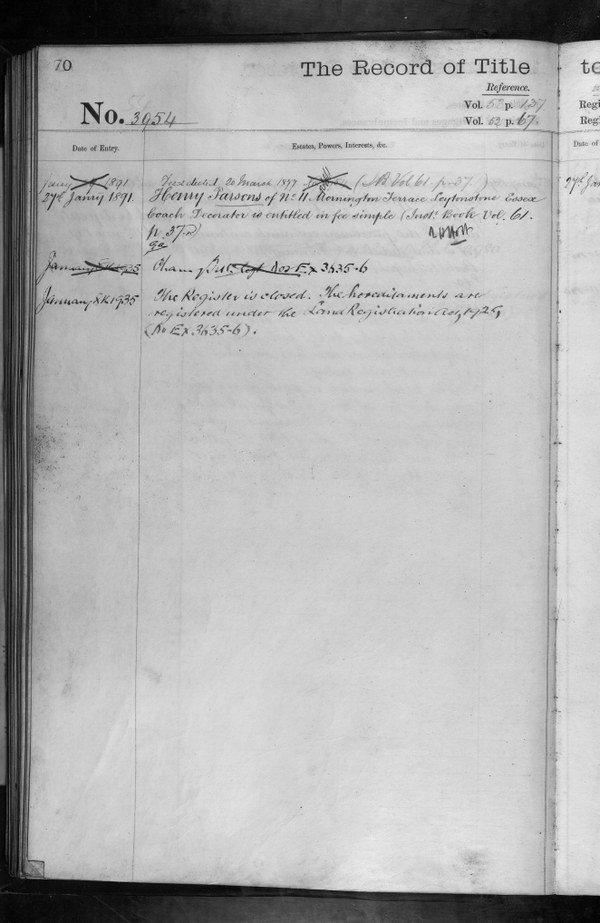 70
The Record of Title
Reference.
No. 3954
Vol. 52 p. 137
Vol. 52 p. 67.
Date of Entry.
Estates, Powers, Interests, &c.
Jany 1891 dated 20 March 1877 (Vol 61. p. 37.)
27th Janry 1891. Henry Parsons of No 11 Mornington Terrace Leytonstone Essex
Coach Decorator is entitled in fee simple (Inst. Book Vol. 61.
p. 37.)
January 1935 3435-6
January 1935 The Register is closed. The hereditaments are
registered under the Land Registration Act, 1925,
(No Ex 3435-6).
te
Regi
Reg
Date of
27th Jan